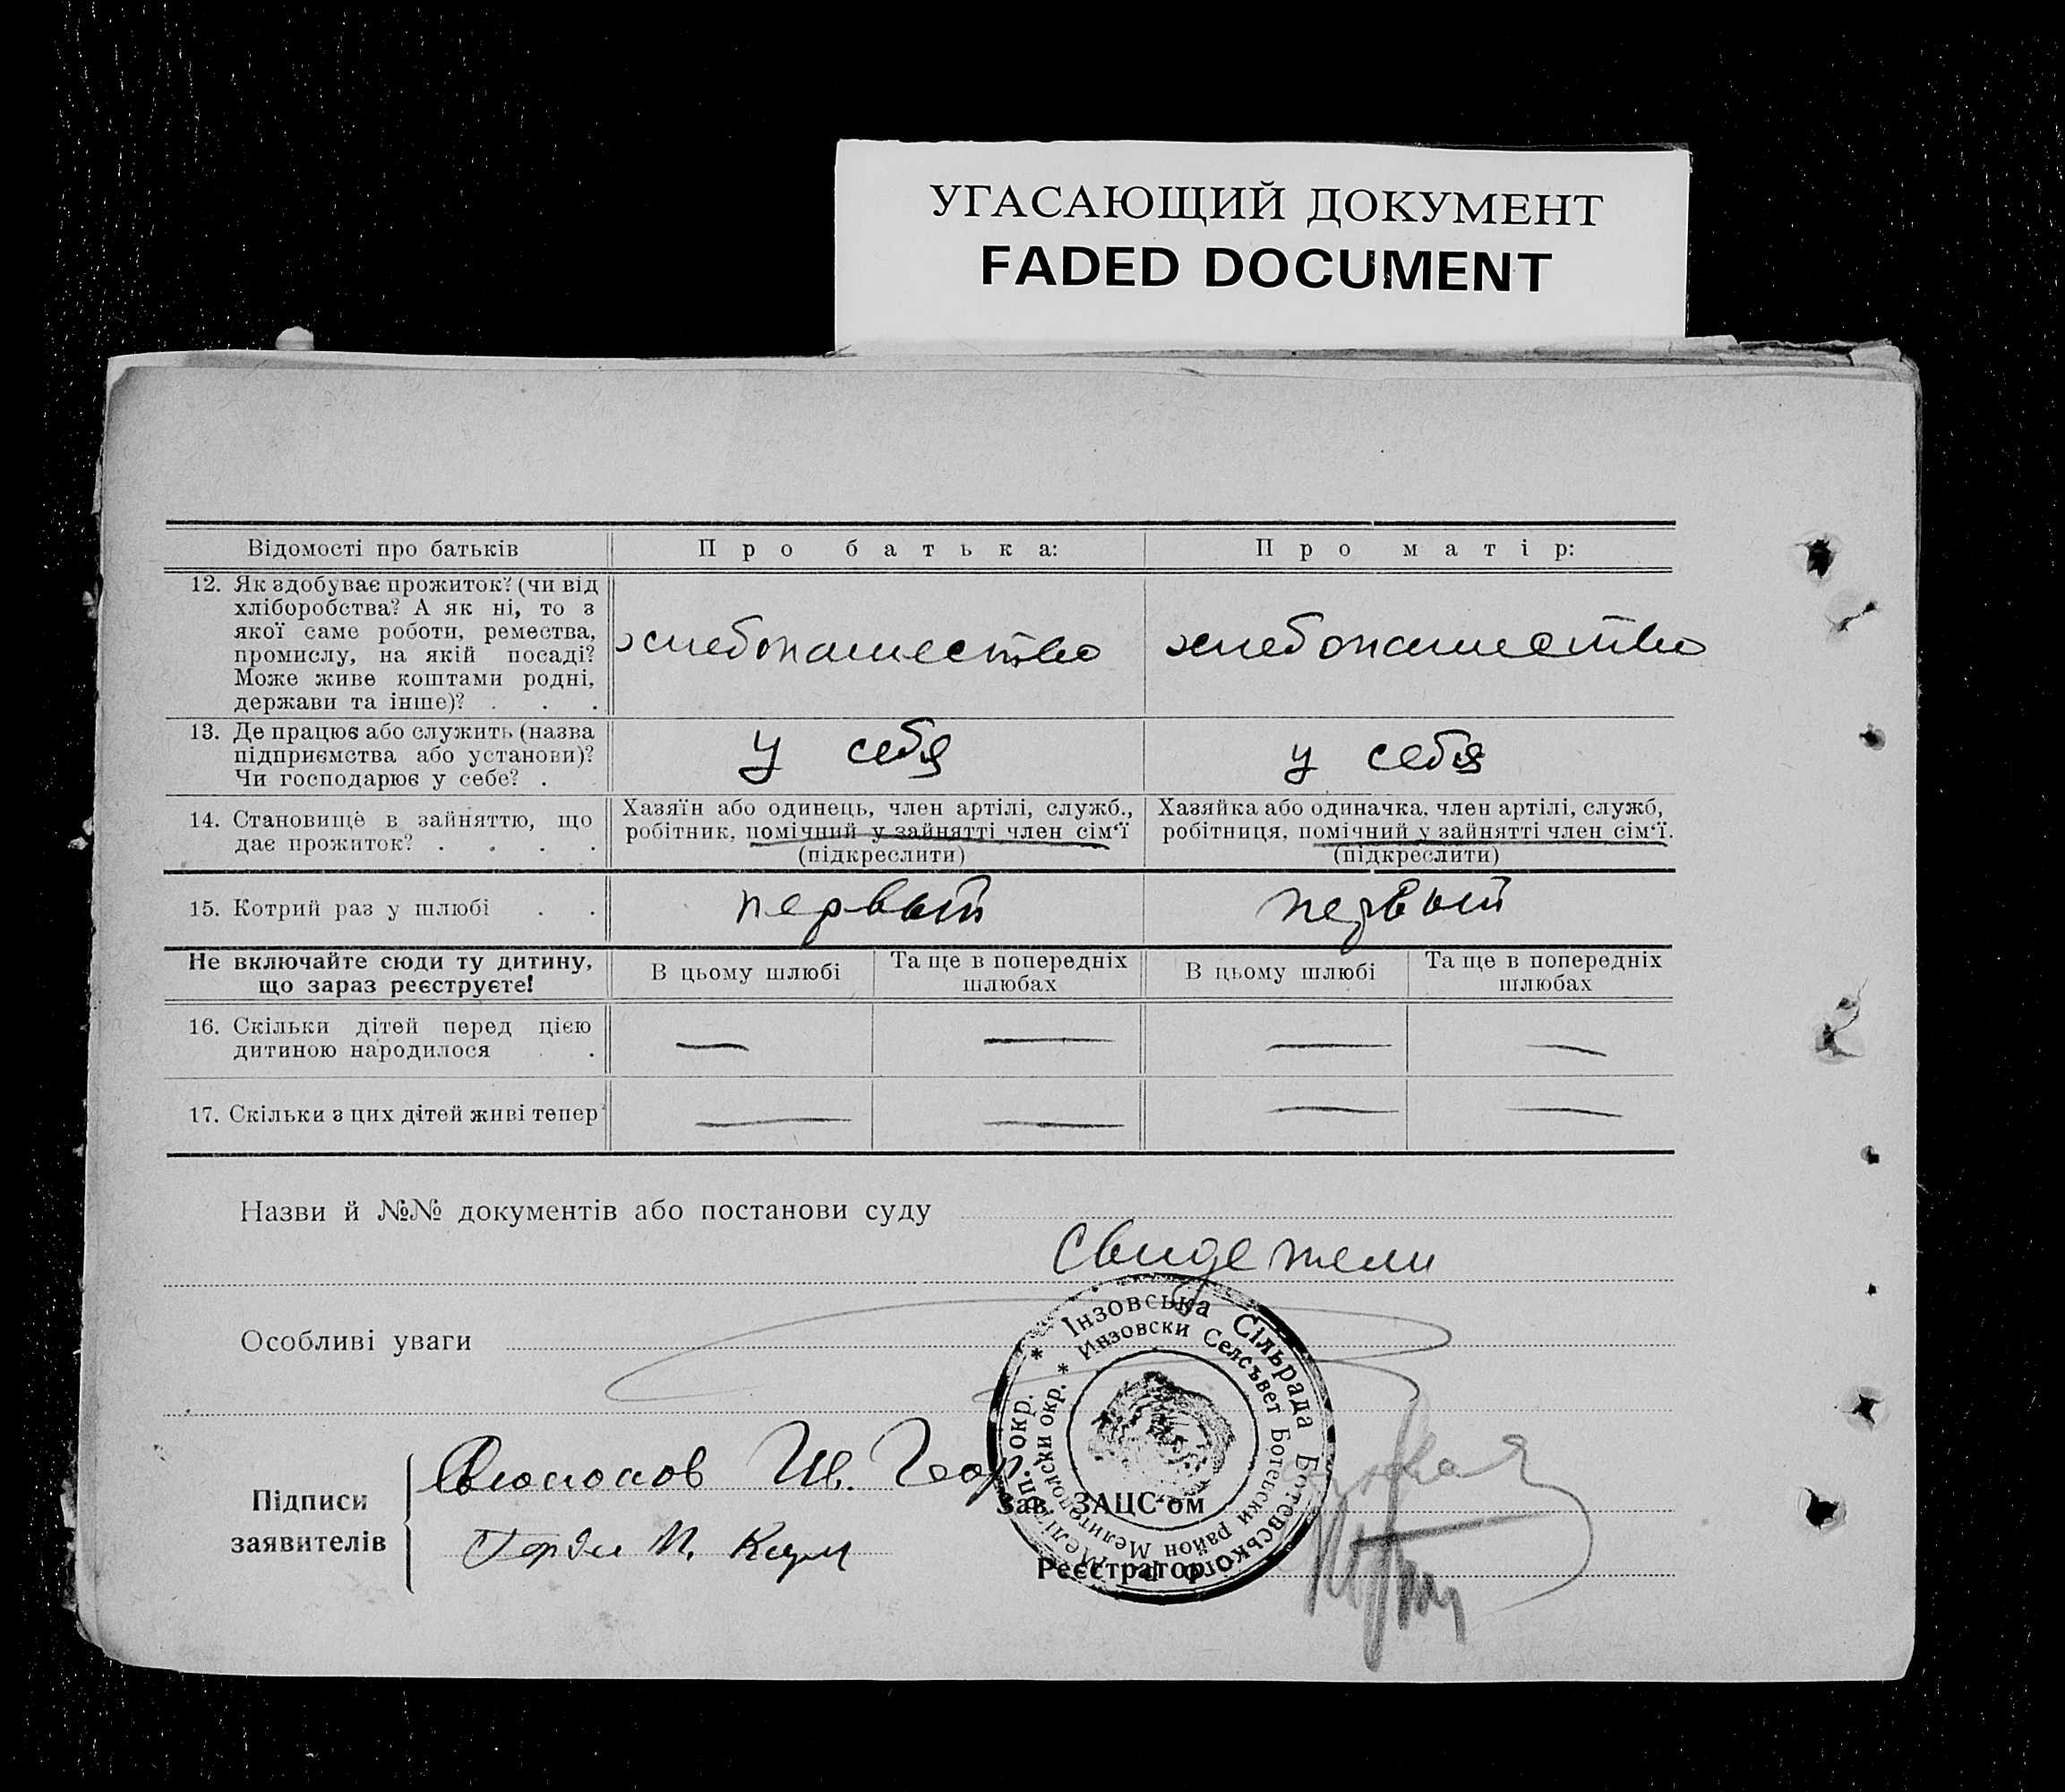 УГАСАЮЩИЙ ДОКУМЕНТ
FADED DOCUMENT
Відомості про батьків
Про батька:
Про матір:
12. Як здобуває прожиток? (чи від
хліборобства? А як ні, то з
якої саме роботи, ремества,
промислу, на якій посаді?
Може живе коштами родні,
держави та інше)? . . .
хлебопашество
хлебопашество
13. Де працює або служить (назва
підприємства або установи)?
Чи господарює у себе? .
у себя
у себя
14. Становище в зайняттю, що
дає прожиток? . . . .
Хазяїн або одинець, член артілі, служб.,
робітник, помічний у зайнятті член сім'ї
(підкреслити)
Хазяйка або одиначка, член артілі, служб,
робітниця, помічний у зайнятті член сім'ї.
(підкреслити)
15. Котрий раз у шлюбі . .
первый
первый
Не включайте сюди ту дитину,
що зараз реєструєте!
В цьому шлюбі
Та ще в попередніх
шлюбах
В цьому шлюбі
Та ще в попередніх
шлюбах
16. Скільки дітей перед цією
дитиною народилося . .
— — — —
17. Скільки з цих дітей живі тепер
— — — —
Назви й №№ документів або постанови суду
Свидетели
Особливі уваги
Підписи
заявителів
Ив. Геор.
М.
Зав. ЗАЦС'ом
Реєстратор
* Інзовська Сільрада Ботевського р. Меліт. окр.
* Инзовски Селсъвет Ботевски район Мелитополски окр.